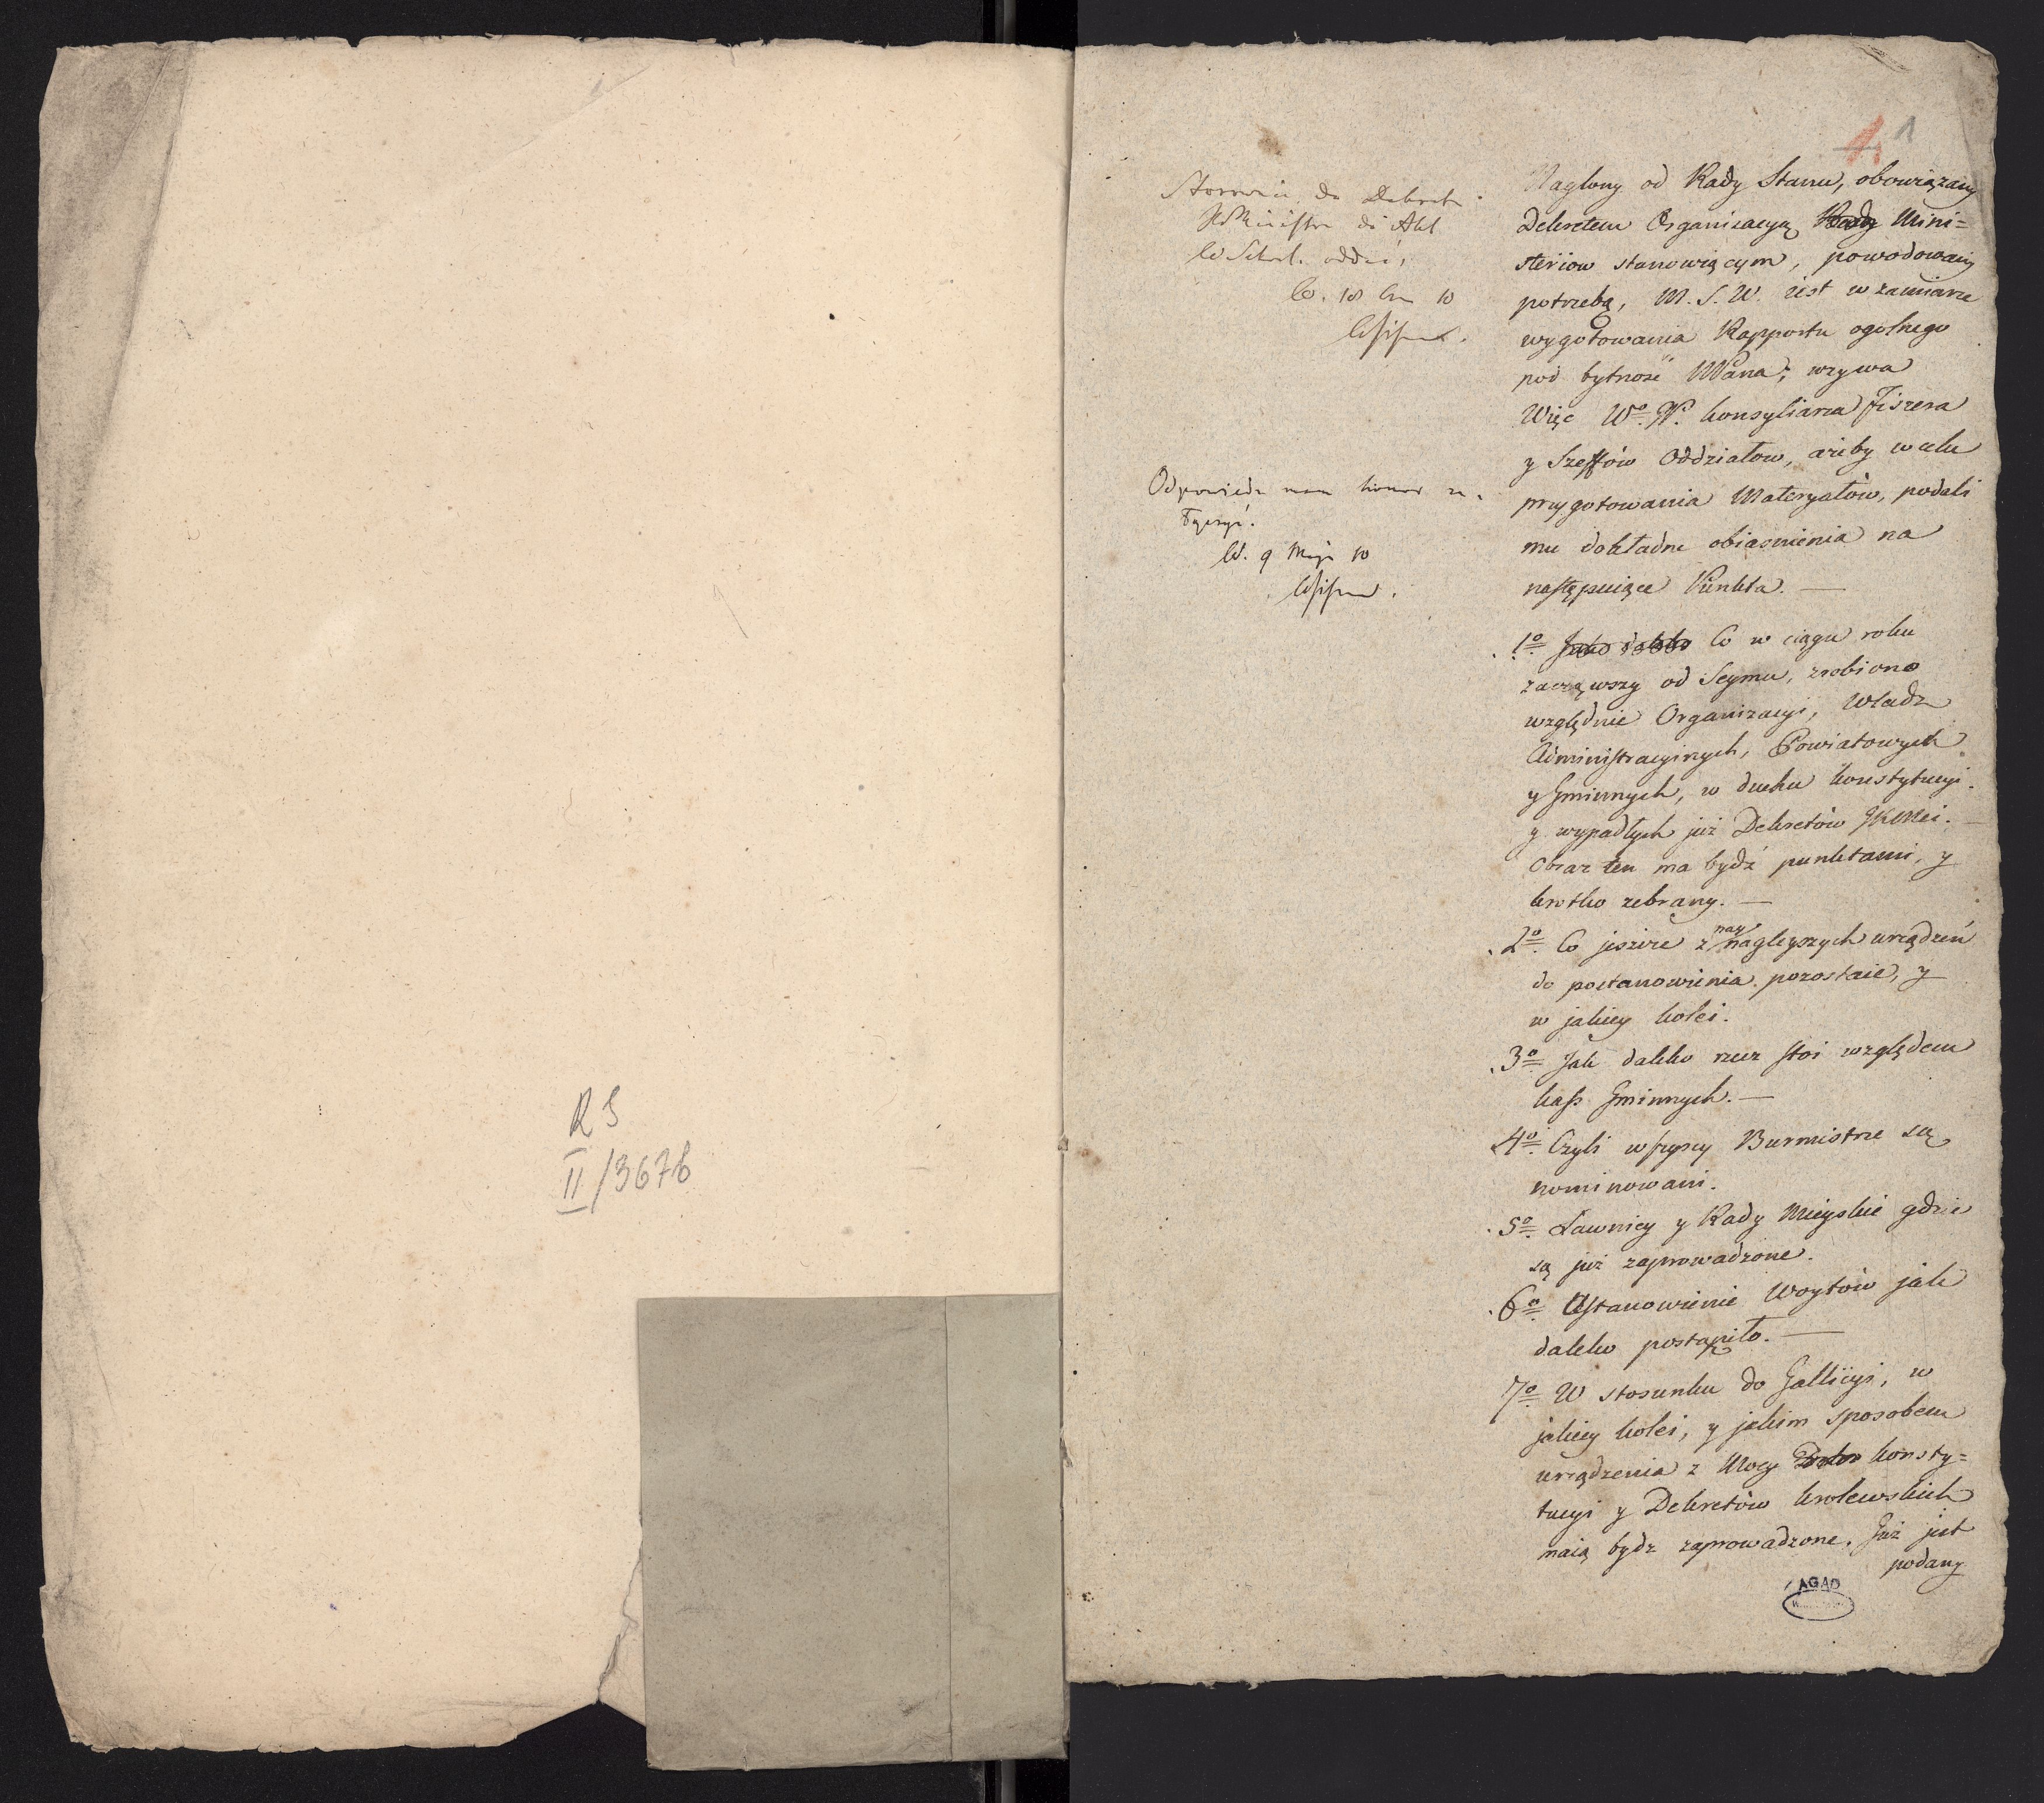 R S
II/3676
1. 1
Naglony od Rady Stanu, obowiązany
Dekretem Organizacyą Rady Mini=
steriow stanowiącym, powodowany
potrzebą, M. S. W. iest w zamiarze
wygotowania Rapportu ogolnego
pod bytność Pana; wzywa
Więc konsyliarza Fiszera
y Szeffów Oddziałow, ażeby w celu
przygotowania Materyałów, podali
mu dokładne obiasnienia na
następuiące Punkta. —
1o Jako daleko Co w ciągu roku
zacząwszy od Seymu, zrobiono
względnie Organizacyi, Władz
Administracyinych, Powiatowych
y Gminnych, w duchu konstytucyi
y wypadłych już Dekretów JKMci. —
Obraz ten ma bydź punktami, y
krotko zebrany. —
2o Co jeszcze z nay nagleyszych urządzeń
do postanowienia pozostaie, y
w jakiey kolei.
3o Jak daleko rzecz stoi względem
kass Gminnych. —
4o Czyli wszyscy Burmistrze są
nominowani.
5o Ławnicy y Rady Mieyskie gdzie
są już zaprowadzone.
6o Ustanowienie Woytów jak
daleko postąpiło. —
7o W stosunku do Gallicyi, w
jakiey kolei, y jakim sposobem
urządzenia z Mocy konsty=
tucyi y Dekretów krolewskich
maią bydz zaprowadzone. Już jest
podany
Stosownie do Dekretu
JW Ministra do Akt
oddać,
10
Odpowiedz mam honor za=
łączyć.
W. 9 Maja 10
AGAD